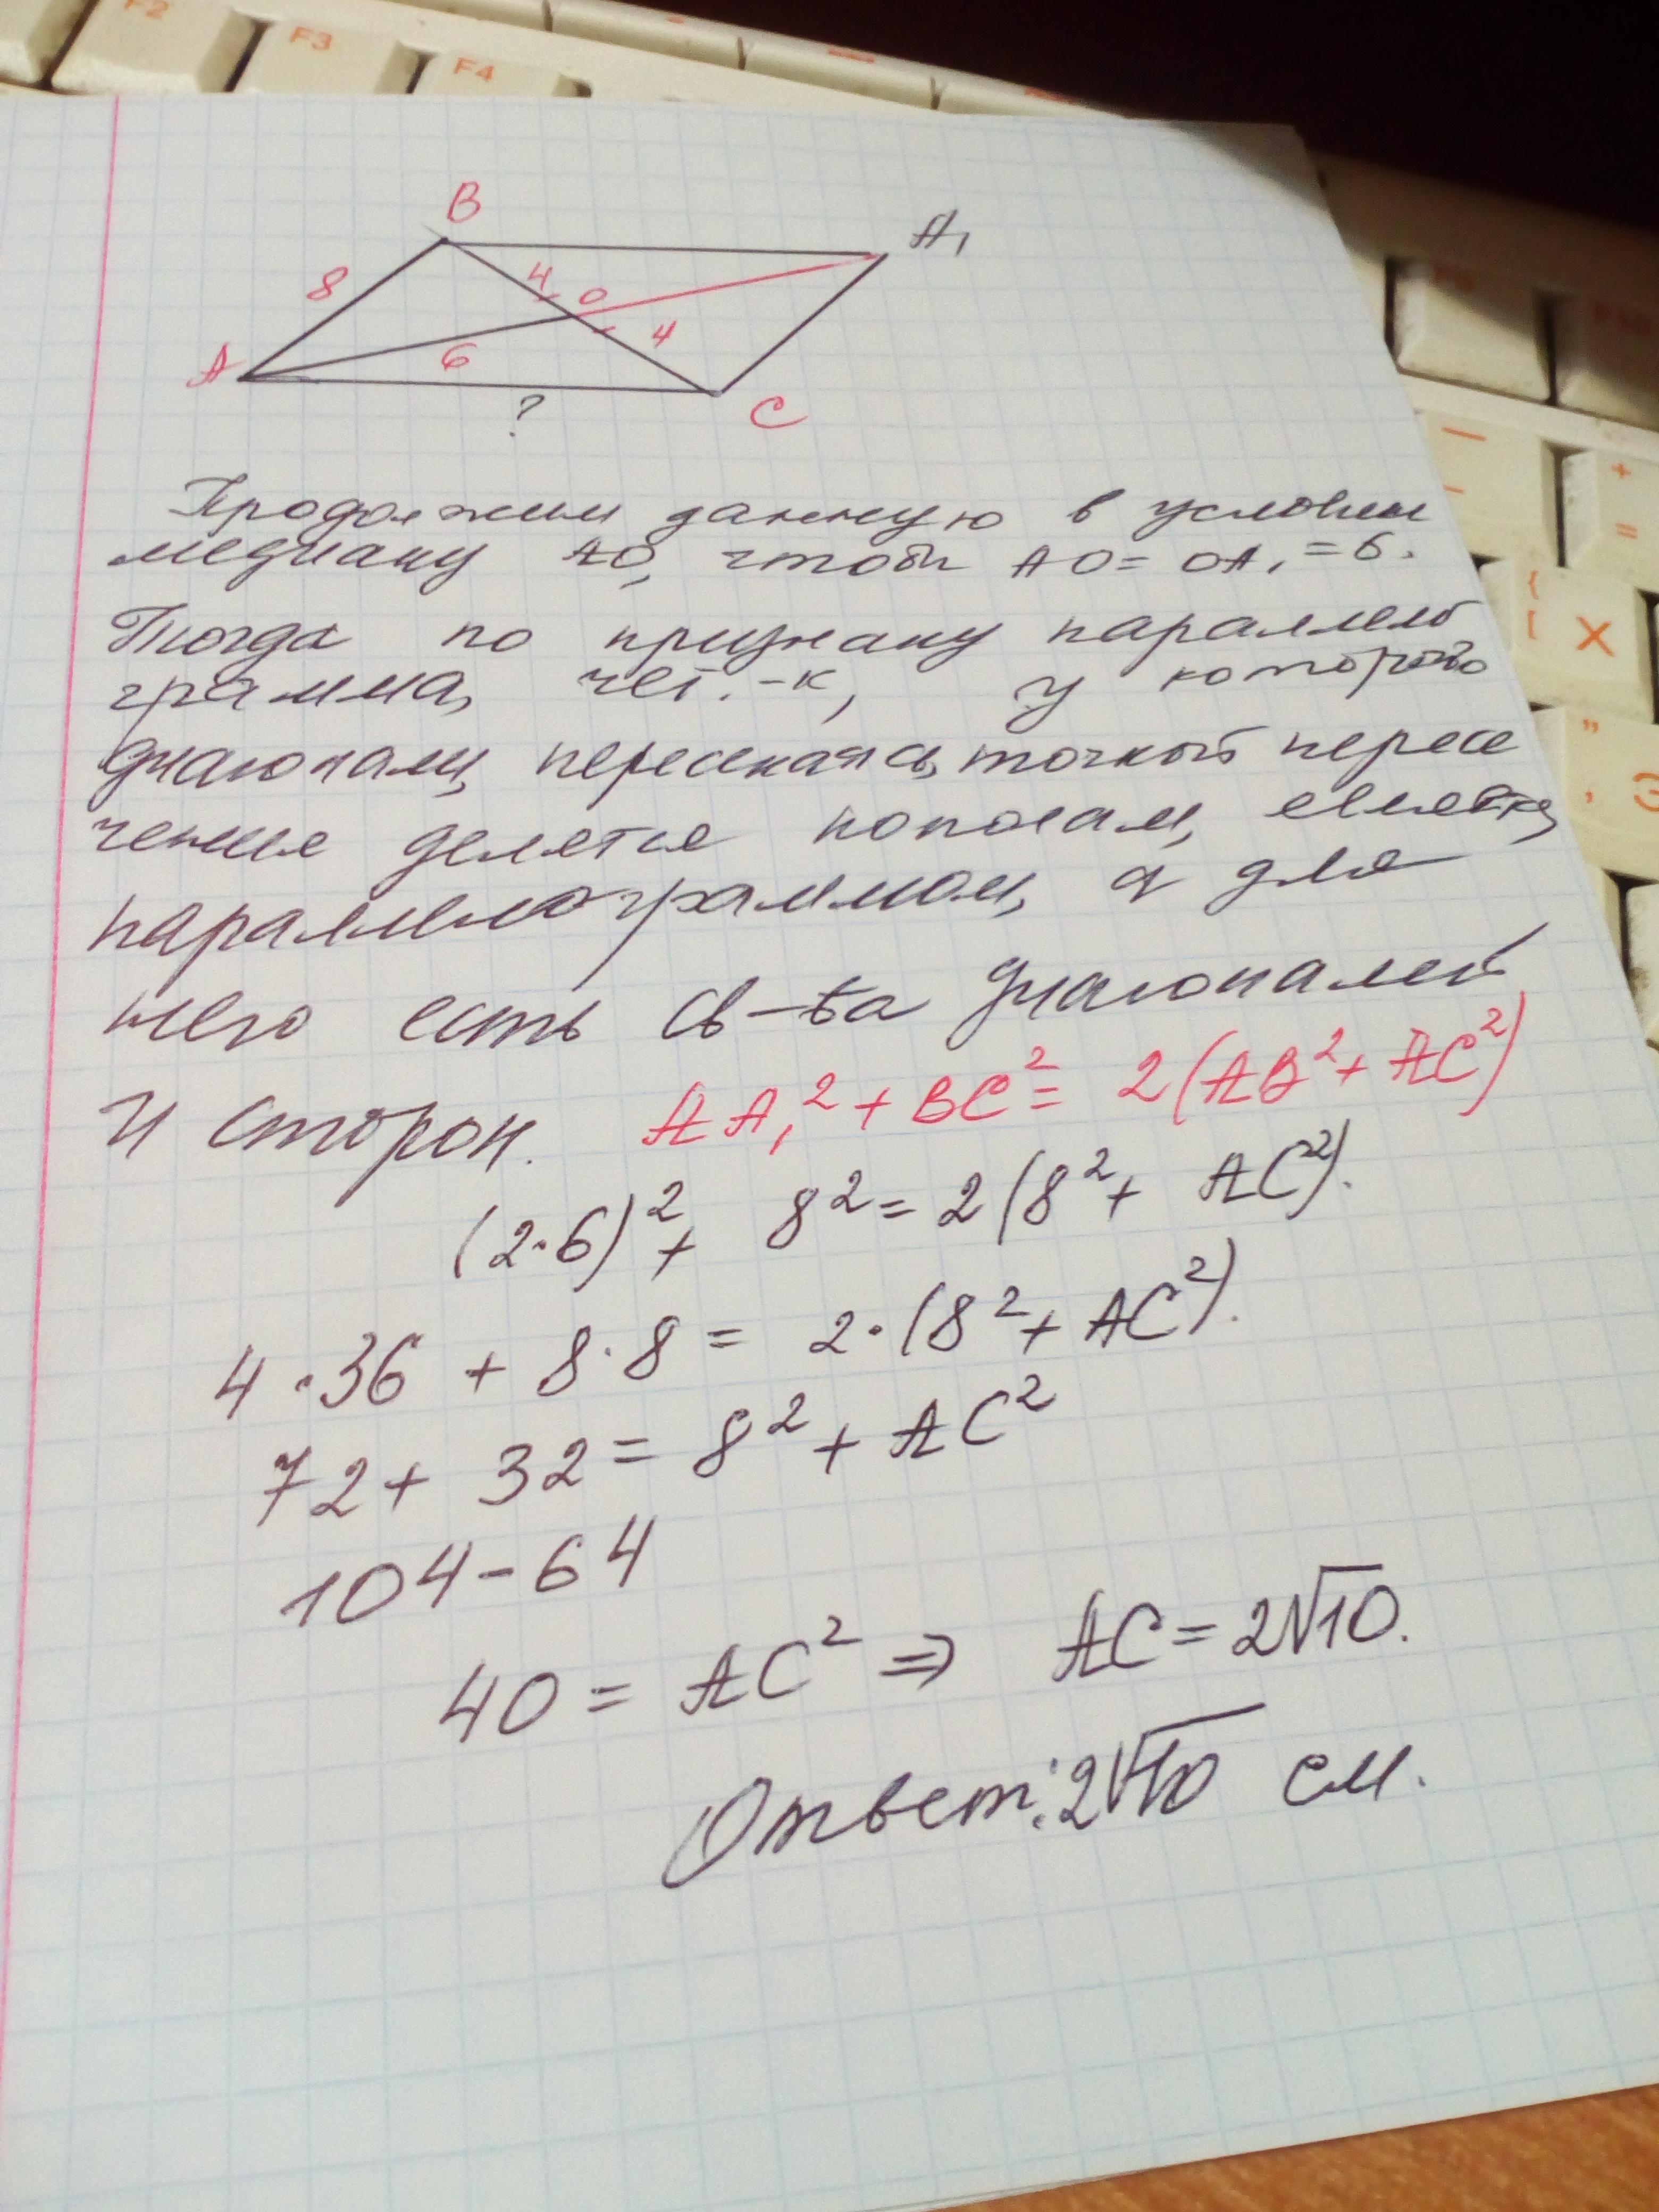 F2
F3
F4
B
A₁
8
4
0
4
A
6
?
C
Продолжим данную в условии
медиану AO, чтобы AO = OA₁ = 6.
Тогда по признаку параллело
грамма, чет.-к, у которого
диагонали, пересекаясь, точкой пересе
чения делятся пополам, является
параллелограммом, а для
него есть св-ва диагоналей
и сторон. AA₁² + BC² = 2(AB² + AC²)
(2·6)² + 8² = 2(8² + AC²).
4·36 + 8·8 = 2·(8² + AC²).
72 + 32 = 8² + AC²
104 - 64
40 = AC² ⇒ AC = 2√10.
Ответ: 2√10 см.
+
=
{
[
X
"
,
Э